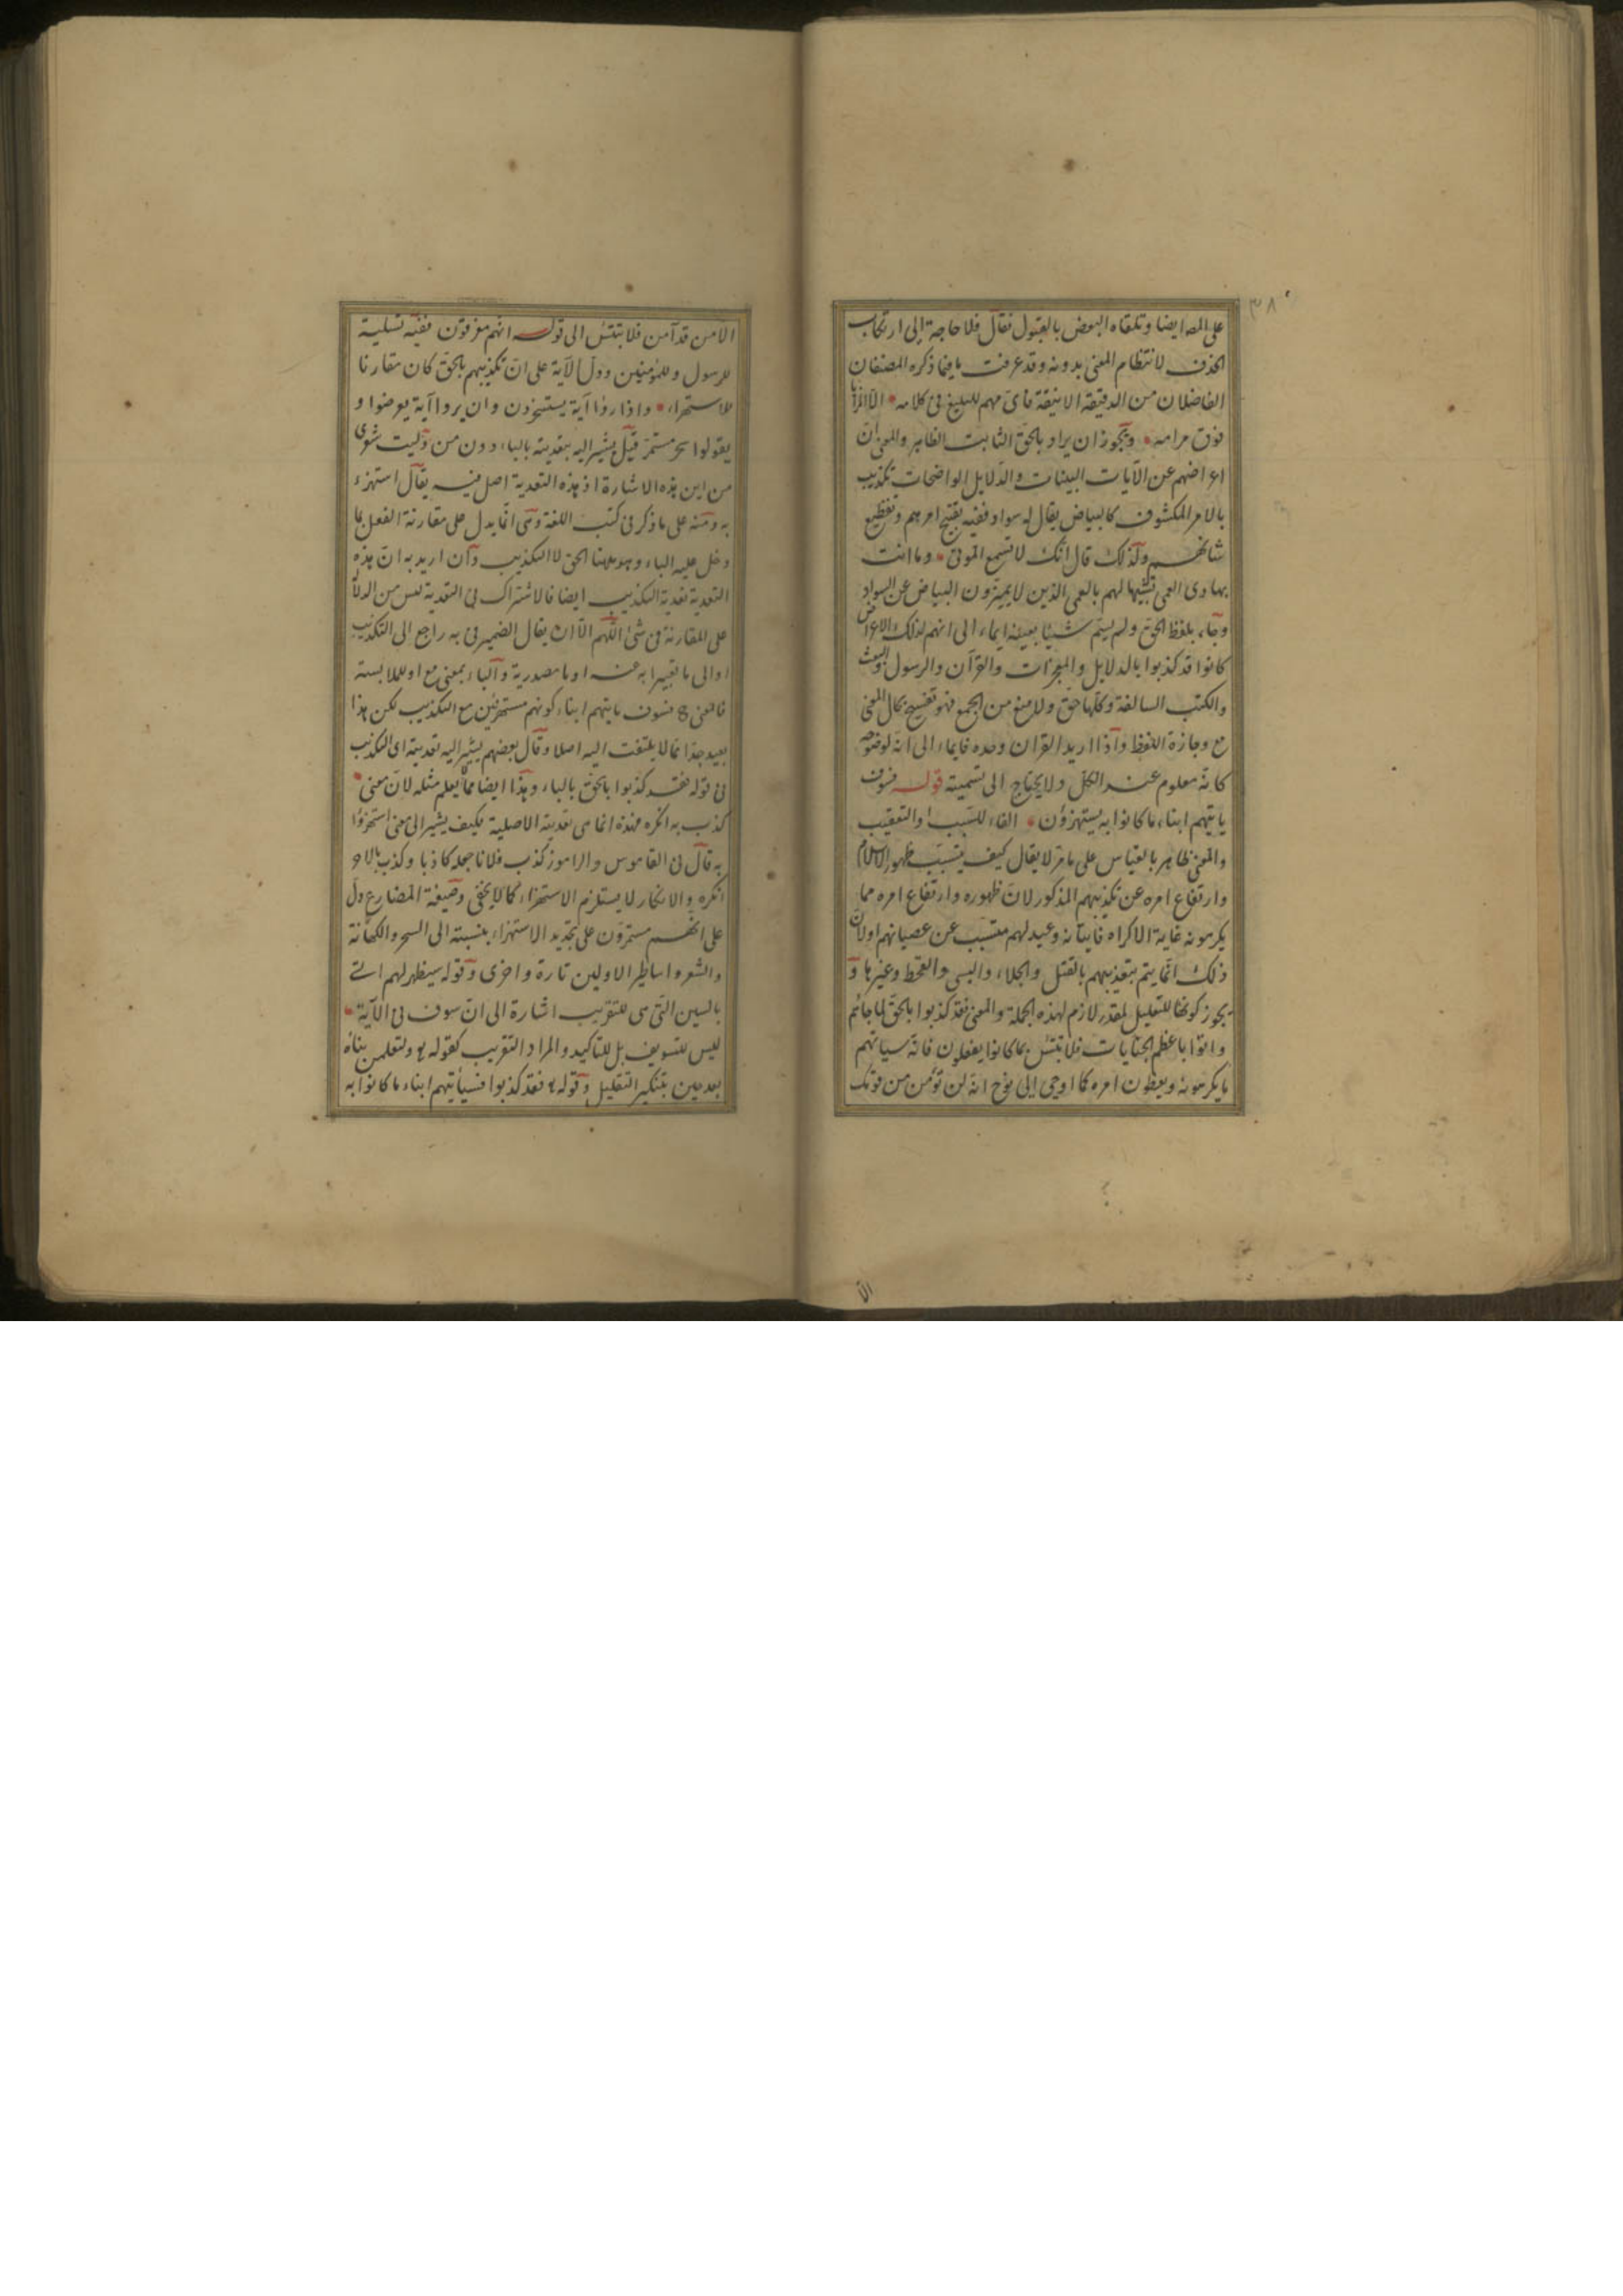 ٣٨
على المص ايضا وتلقاه البعض بالقبول فقال فلا حاجة الى ارتكاب
الحذف لانتظام المعنى بدونه وقد عرفت ما فيما ذكره المصنفان
الفاضلان من الدقيقة الانيقة فاى مهم للبليغ فى كلامه
فوق مرامه ويجوز ان يراد بالحق الثابت الظاهر والمعنى ان
اعراضهم عن الآيات البينات والدلايل الواضحات تكذيب
بالامر المكشوف كالبياض يقال له سواد ففيه تقبيح امرهم وتفظيع
شانهم ولذلك قال انك لا تسمع الموتى وما انت
بهادى العمى تشبيها لهم بالعمى الذين لا يميزون البياض عن السواد
وجاء بلفظ الحق ولم يسم شيئا بعينه ايماء الى انهم لذلك الاعراض
كانوا قد كذبوا بالدلايل والمعجزات والقرآن والرسول والبعث
والكتب السالفة وكلها حق ولا منع من الجمع فهو تفسيح بكمال المعنى
مع وجازة اللفظ واذا اريد القران وحده فايماء الى انه لوضوحه
كانه معلوم عند الكل ولا يحتاج الى تسمية قوله فسوف
ياتيهم انباء ما كانوا به يستهزؤن الفاء للتسبب او التعقيب
والمعنى ظاهر بالقياس على ما مر لا يقال كيف يتسبب ظهور الاسلام
وارتفاع امره عن تكذيبهم المذكور لان ظهوره وارتفاع امره مما
يكرهونه غاية الاكراه فاتيانه وعيد لهم متسبب عن عصيانهم اولان
ذلك انما يتم بتعذيبهم بالقتل والجلاء والسبى والقحط وغيرها و
يجوز كونها للتعليل لمقدر لازم لهذه الجملة والمعنى فقد كذبوا بالحق لما جائهم
واتوا باعظم الجنايات فلا تبتئس بما كانوا يفعلون فانه سيأتيهم
ما يكرهونه ويعظون امره كما اوحى الى نوح انه لن تؤمن من قومك
الا
الا من قد آمن فلا تبتئس الى قوله انهم مغرقون ففيه تسلية
للرسول وللمؤمنين ودل الآية على ان تكذيبهم بالحق كان مقارنا
للاستهزاء واذا راوا آية يستسخرون وان يروا آية يعرضوا و
يقولوا سحر مستمر قيل يشير اليه بتعديته بالباء دون من وليت شعرى
من اين هذه الاشارة اذ هذه التعدية اصل فيه يقال استهزء
به ومنه على ما ذكر فى كتب اللغة وهى انما يدل على مقارنة الفعل بما
دخل عليه الباء وهو ههنا الحق لا التكذيب وان اريد به ان هذه
التعدية تعدية التكذيب ايضا فالاشتراك فى التعدية ليس من الدلالة
على المقارنة فى شئ اللهم الا ان يقال الضمير فى به راجع الى التكذيب
او الى ما تعبيرا به عنه او ما مصدرية والباء بمعنى مع او للملابسة
فالمعنى ح فسوف ياتيهم انباء كونهم مستهزئين مع التكذيب لكن هذا
بعيد جدا مما لا يلتفت اليه اصلا وقال بعضهم يشير اليه تعديته اى التكذيب
فى قوله فقد كذبوا بالحق بالباء وهذا ايضا مما يعلم مثله لان معنى
كذب به انكره فهذه انما هى تعديته الاصلية فكيف يشير الى معنى استهزؤا
به قال فى القاموس والراموز كذب فلانا جعله كاذبا وكذب بالامر
انكره والانكار لا يستلزم الاستهزاء كما لا يخفى وصيغة المضارع دل
على انهم مستمرون على تجديد الاستهزاء بنسبته الى السحر والكهانة
والشعر واساطير الاولين تارة واخرى وقوله سيظهر لهم
بالسين التى هى للتقريب اشارة الى ان سوف فى الآية
ليس للتسويف بل للتاكيد والمراد التقريب كقوله تع ولتعلمن نبأه
بعد حين بتنكير التقليل وقوله تع فقد كذبوا فسيأتيهم انباء ما كانوا به